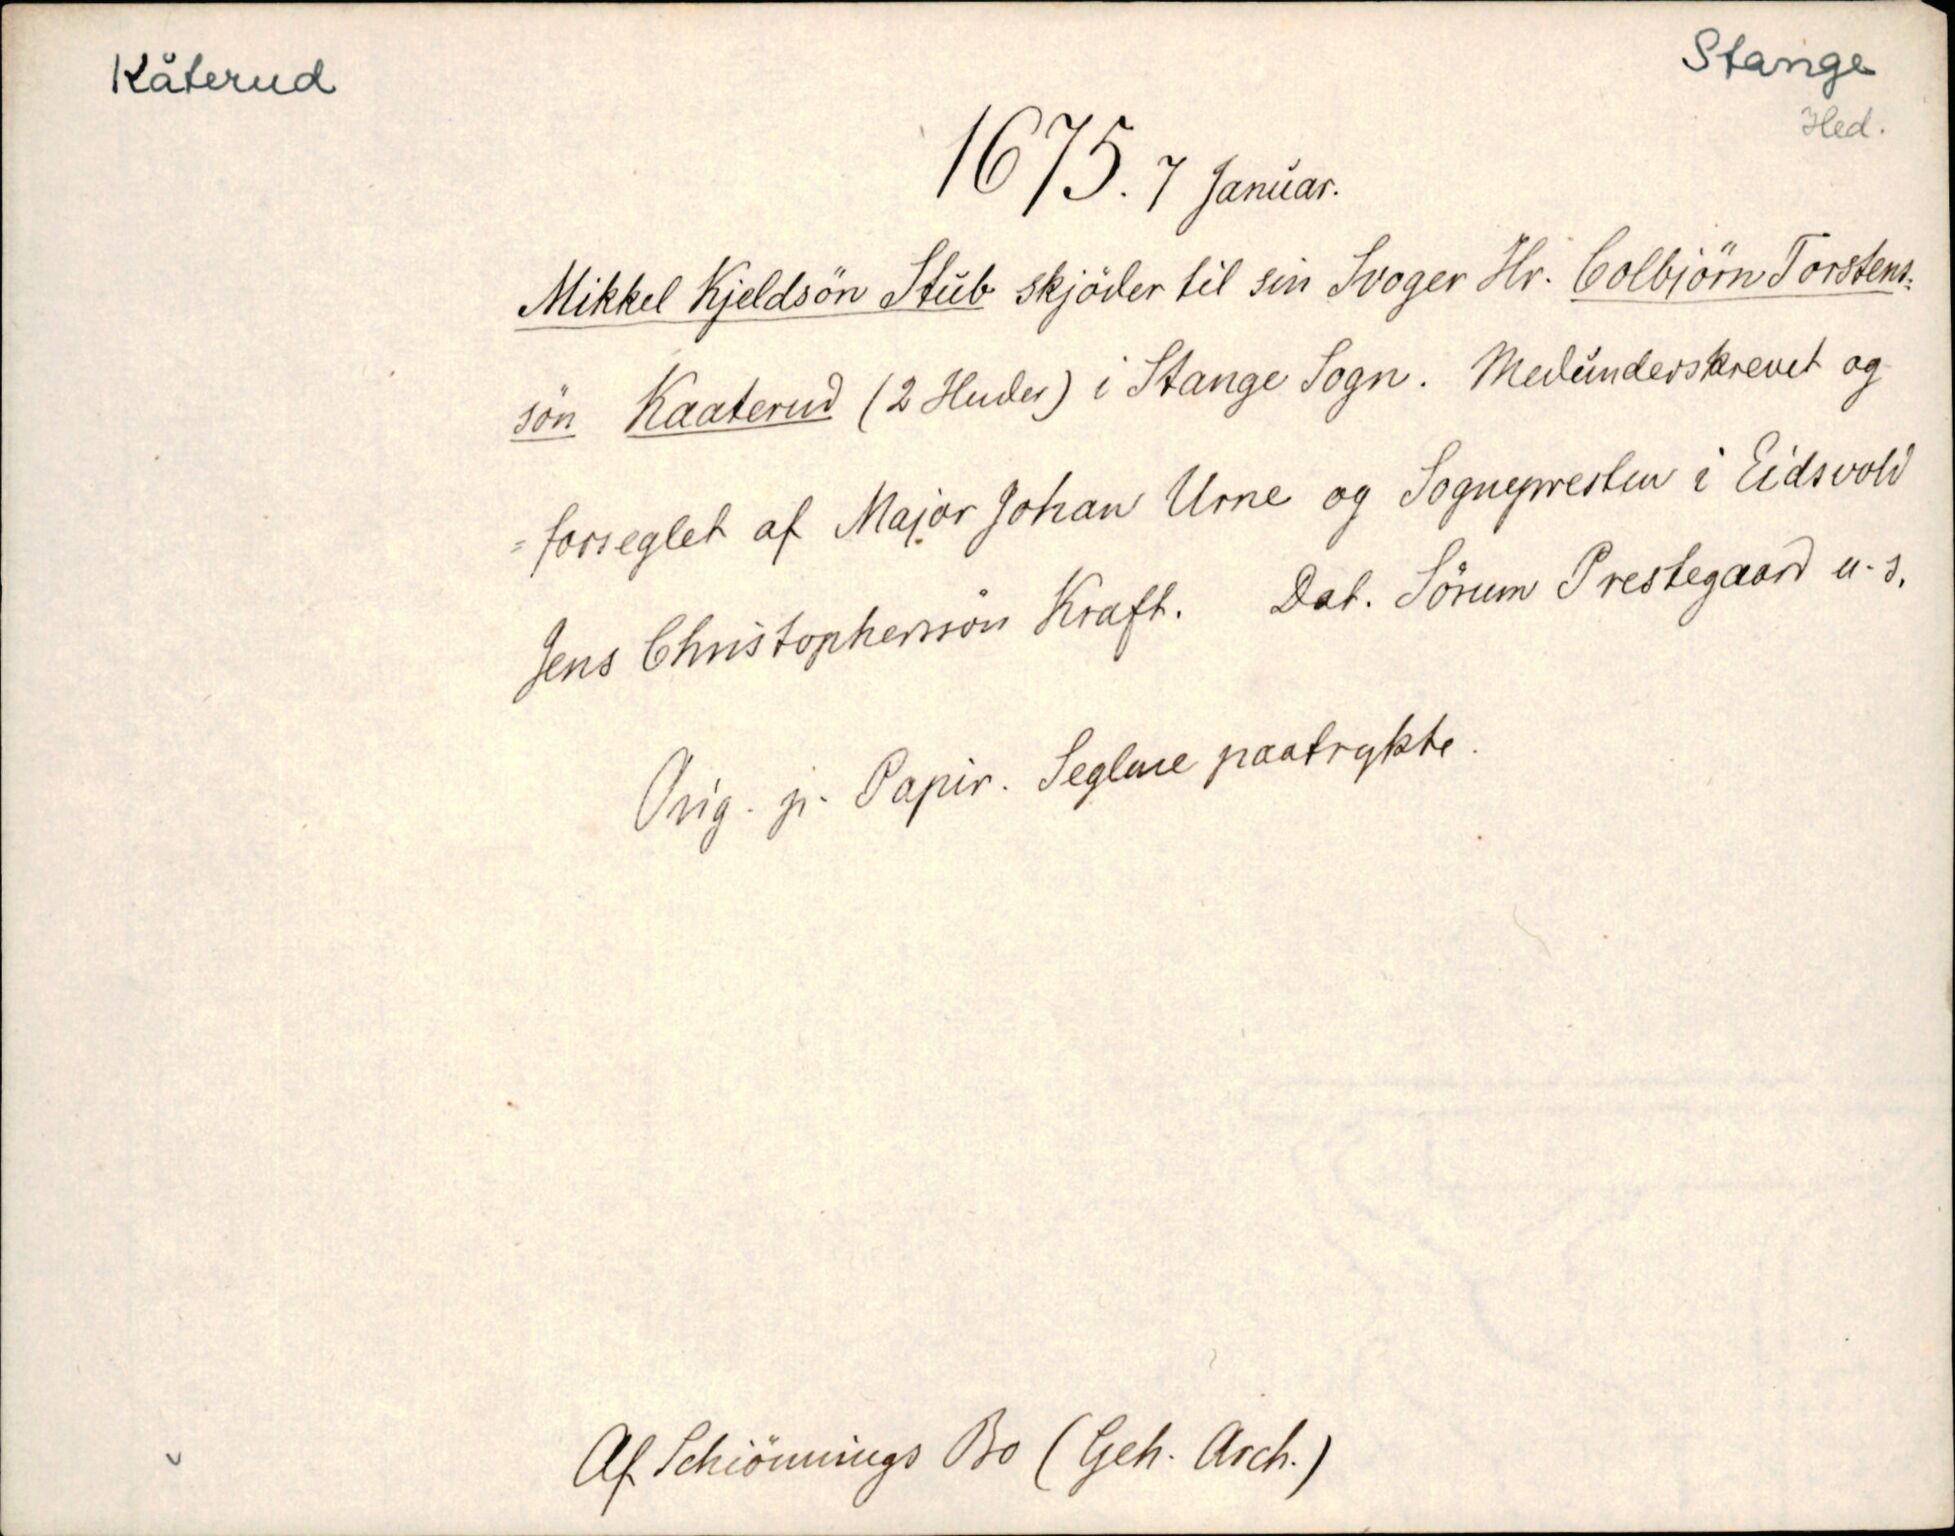 Kåterud
Stange
Hed.
1675. 7 Januar.
Mikkel Kjeldsön Stub skjöder til sin Svoger Hr. Colbjörn Torstens-
sön Kaaterud (2 Huder) i Stange Sogn. Medunderskrevet og
=forseglet af Major Johan Urne og Sognepresten i Eidsvold
Jens Christophersön Kraft. Dat. Sörum Prestegaard u. s.
Orig. p. Papir. Seglene paatrykte.
Af Schiönnings Bo (Geh. Arch.)